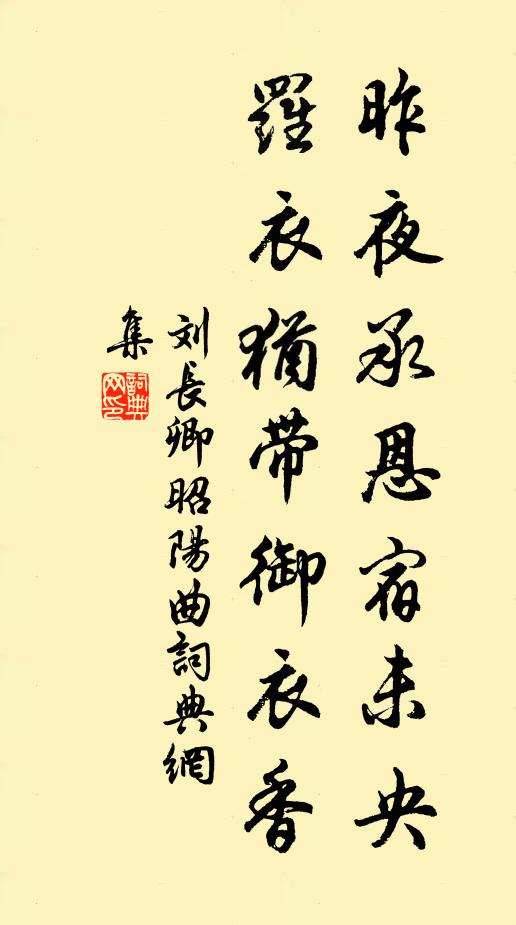 昨夜承恩宿未央
羅衣猶帶御衣香
刘長卿昭陽曲詞典網
集
詞典网印